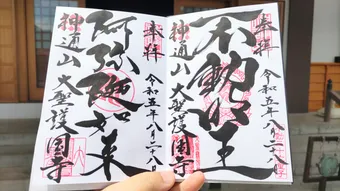 奉拝
令和五年八月二八日
不動明王
神通山 大聖護国寺
奉拝
令和五年八月二八日
阿弥陀如来
神通山 大聖護国寺